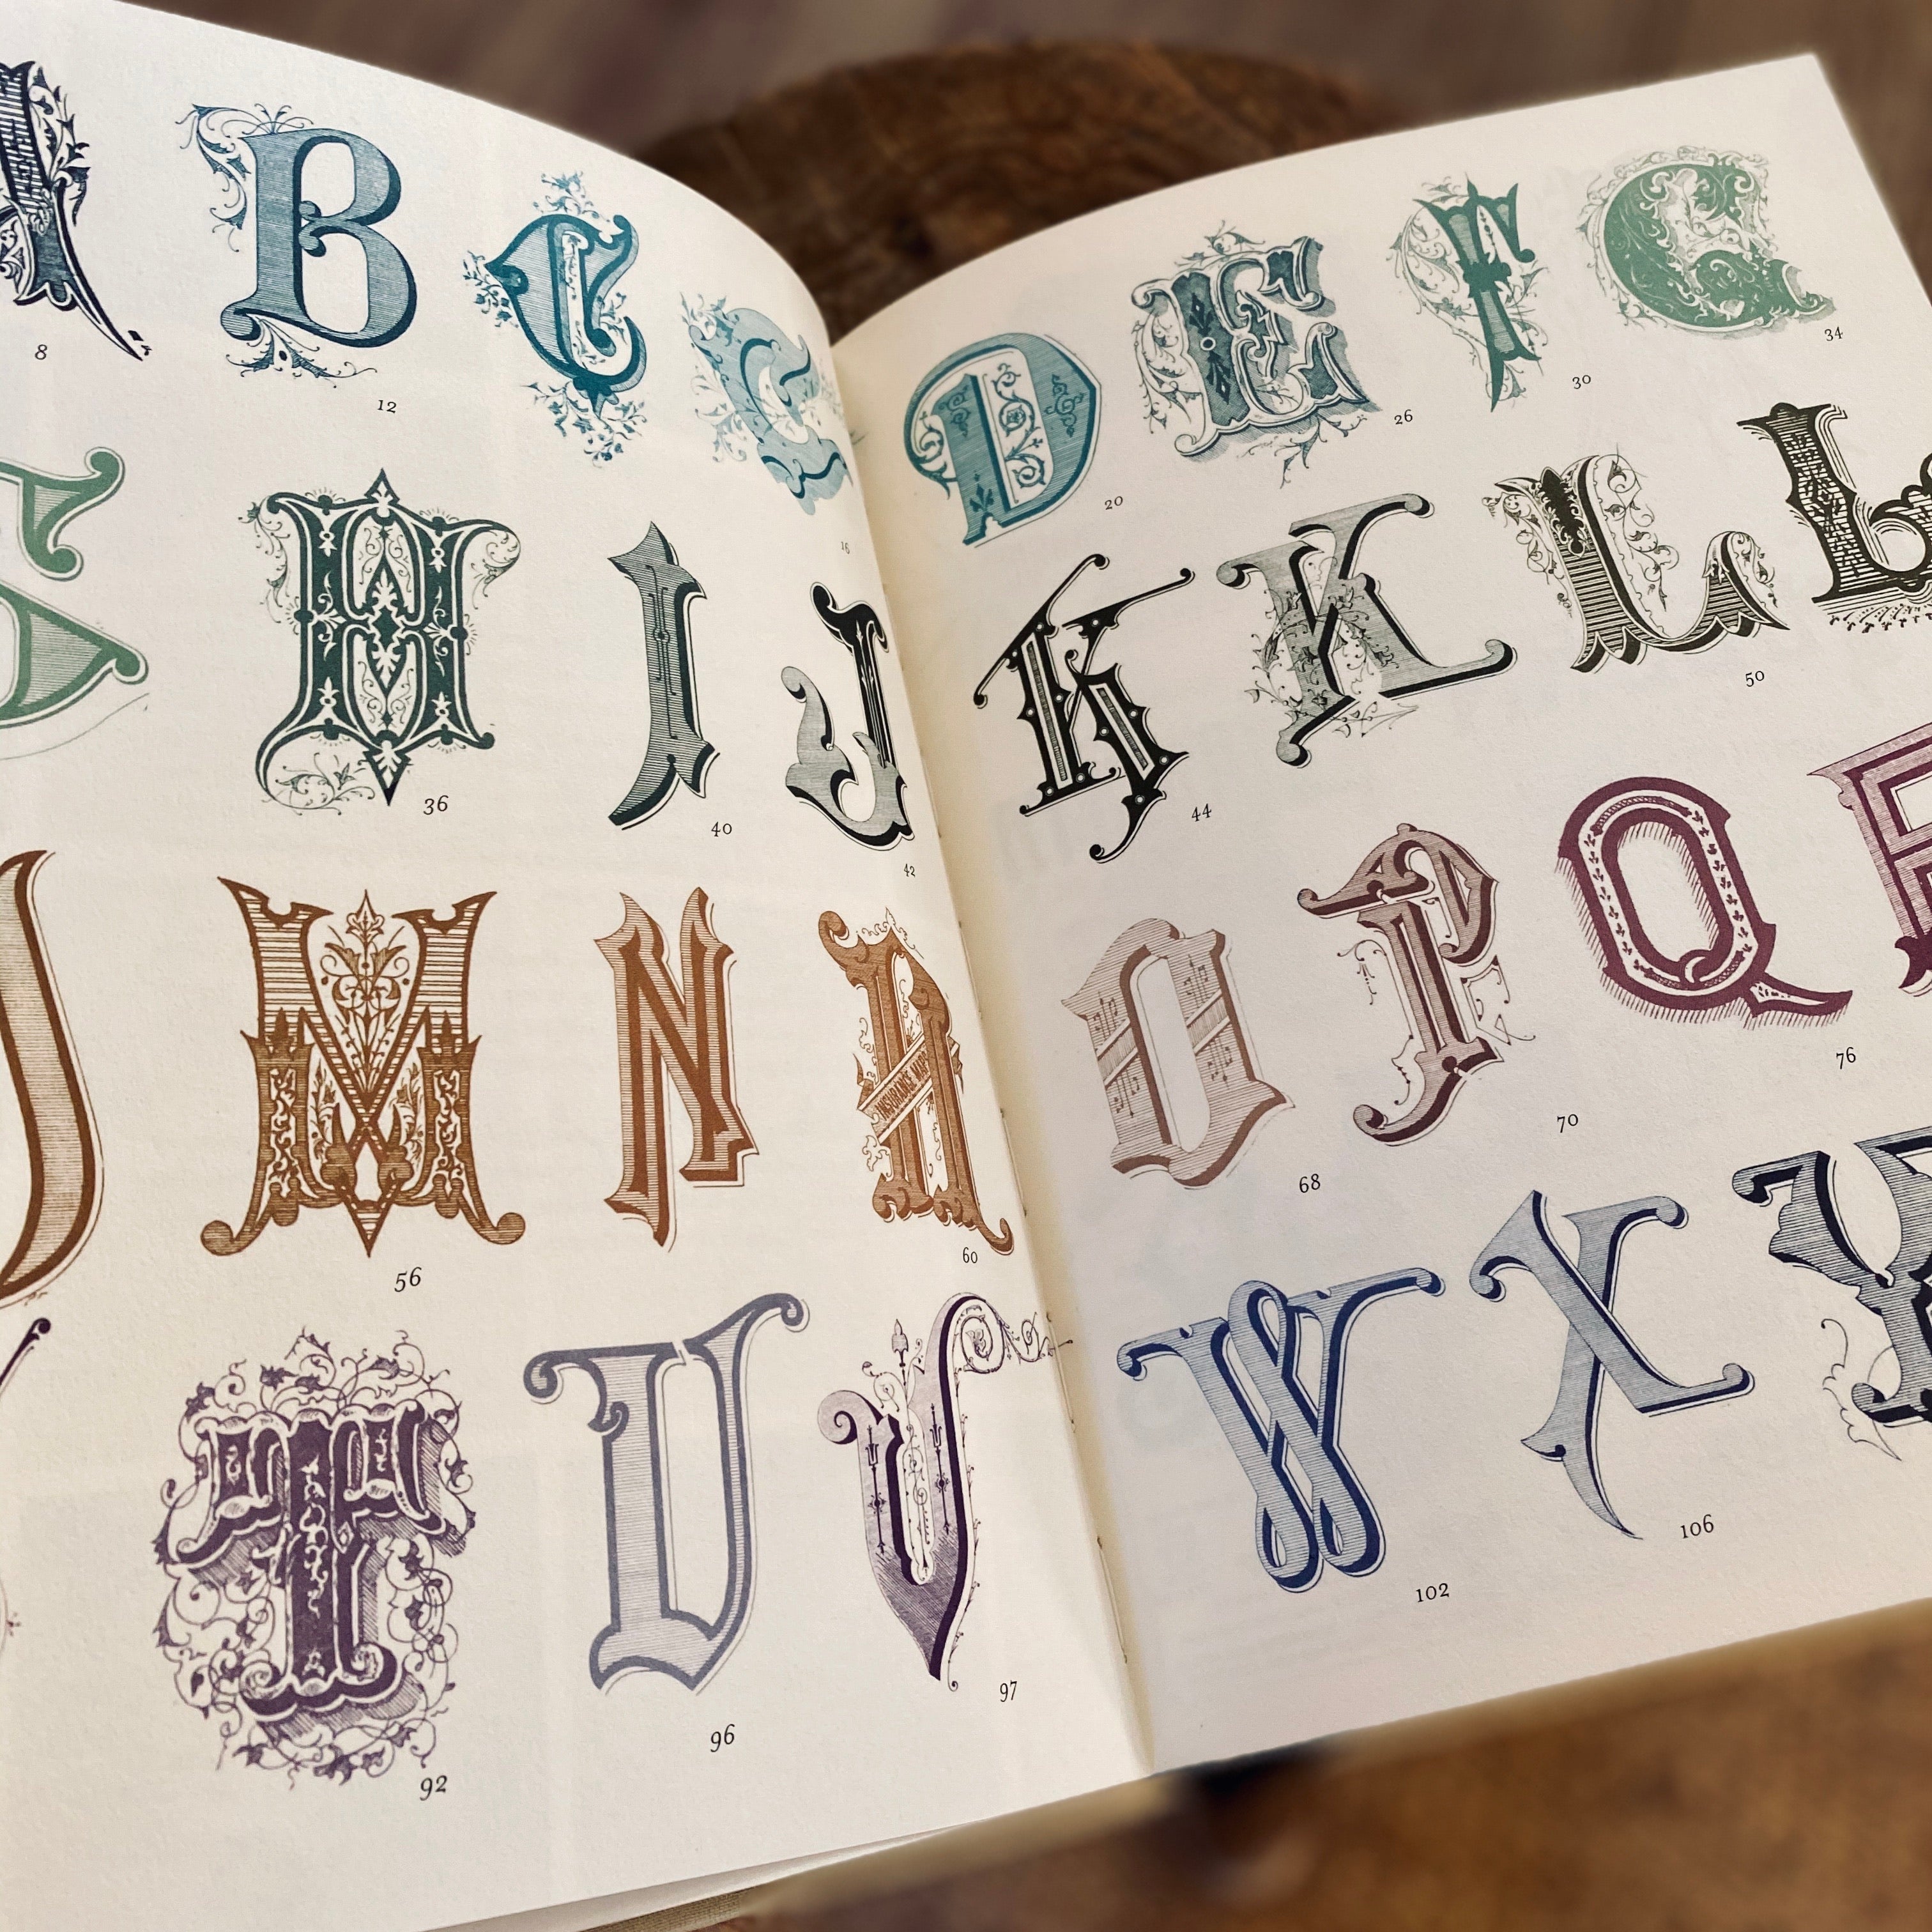 A B C C
8 12 16
G H I J
36 40 42
M N N
INSURANCE MAPS
56 60
T U V
92 96 97
D E F G
20 26 30 34
K K L L
44 50
O P Q R
68 70 76
W X Y
102 106